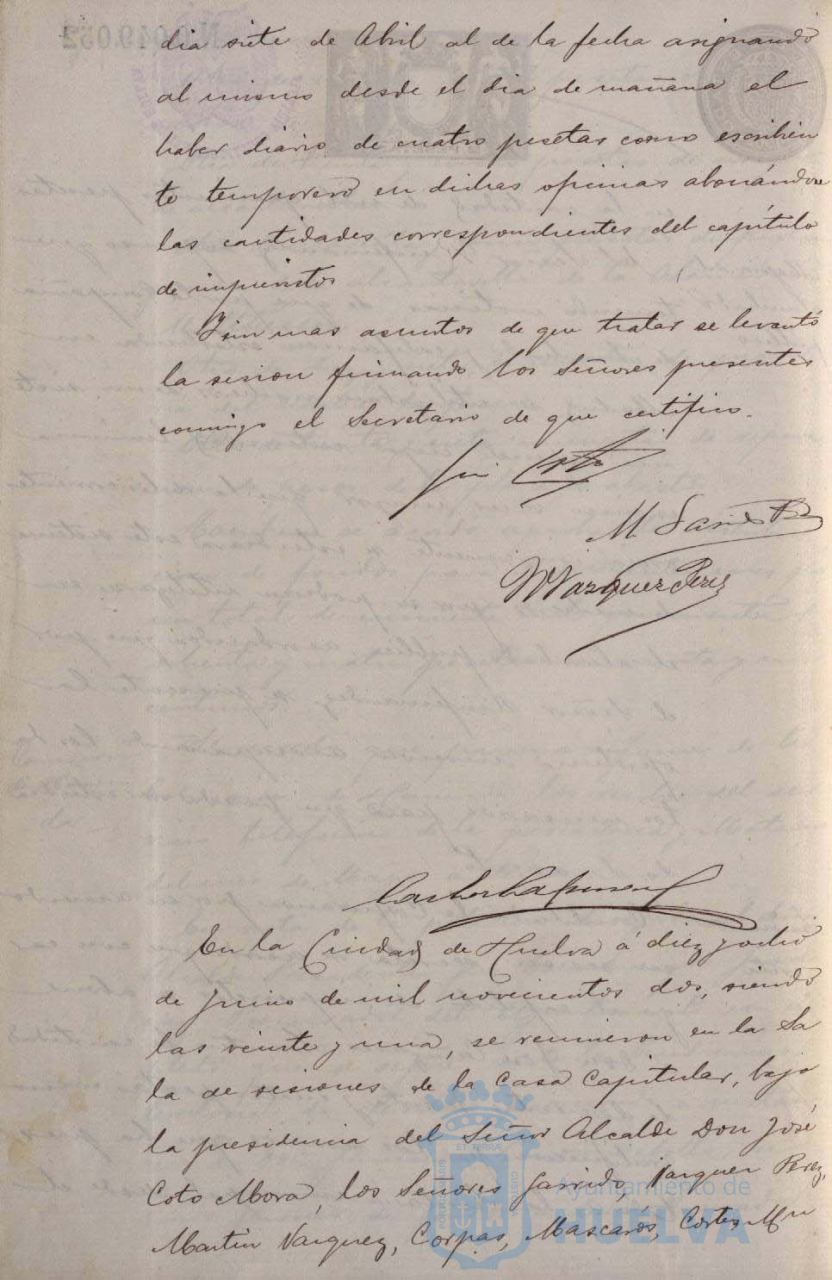 dia siete de Abril al de la fecha asignando
al mismo desde el dia de mañana el
haber diario de cuatro pesetas como escribien
te temporero en dichas oficinas abonándose
las cantidades correspondientes del capítulo
de imprevistos
Y sin mas asuntos de que tratar se levantó
la sesion firmando los Señores presentes
conmigo el Secretario de que certifico.
M. Garrido
M Vazquez Perez
En la Ciudad de Huelva á diez y ocho
de Junio de mil novecientos dos, siendo
las veinte y una, se reunieron en la Sa
la de sesiones de la Casa Capitular, bajo
la presidencia del Señor Alcalde Don José
Coto Mora, los Señores Garrido, Vazquez Perez,
Martin Vazquez, Corpas, Mascarós, Cortes, Mu
Ayuntamiento de
HUELVA